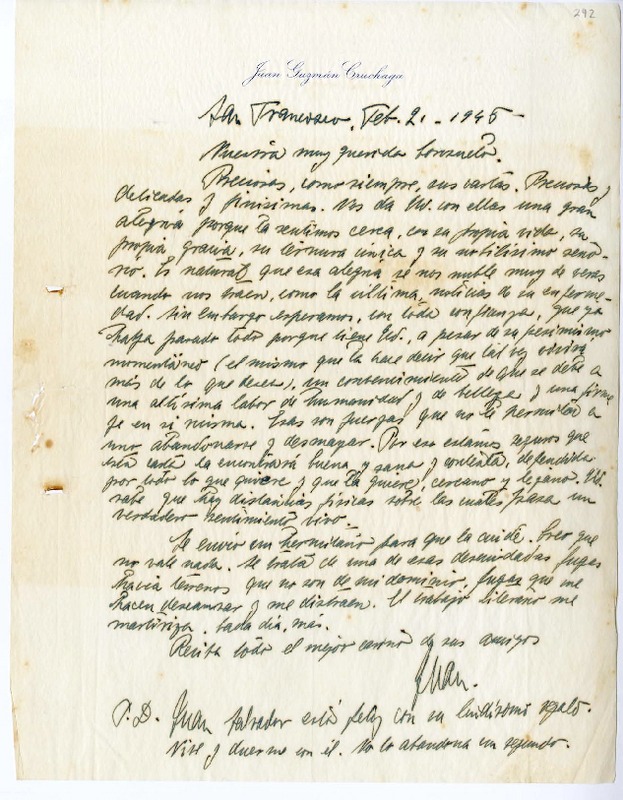 292
Juan Guzmán Cruchaga
San Francisco, Feb. 2. - 1945 -
Nuestra muy querida Consuelo.
Preciosas, como siempre, sus cartas. Preciosas y
delicadas y finísimas. Nos da Ud. con ellas una gran
alegría porque la sentimos cerca, con su propia vida, su
propia gracia, su ternura única y su nobilísimo seño-
río. Es natural que esa alegría se nos nuble muy de veras
cuando nos traen, como la última, noticias de su enferme-
dad. Sin embargo esperamos, con toda confianza, que ya
haya pasado todo porque tiene Ud., a pesar de su pesimismo
momentáneo (el mismo que la hace decir que tal vez vivirá
más de lo que desea), un convencimiento de que se debe a
una altísima labor de humanidad y de belleza y una firme
fe en si misma. Esas son fuerzas que no le permiten a
uno abandonarse y desmayar. Por eso estamos seguros que
esta carta la encontrará buena y sana y contenta, defendida
por todo lo que quiere y que la quiere, cercano y lejano. Ud.
sabe que hay distancias físicas sobre las cuales pasa un
verdadero sentimiento vivo.
Le envío un hermitaño para que la cuide. Creo que
no vale nada. Se trata de una de esas descuidadas fugas
hacia terrenos que no son de mi dominio, fugas que me
hacen descansar y me distraen. El trabajo literario me
martiriza. Cada día, más.
Reciba todo el mejor cariño de sus amigos
Juan.
P.D. Juan Salvador está feliz con su lindísimo regalo.
Vive y duerme con él. No lo abandona un segundo.